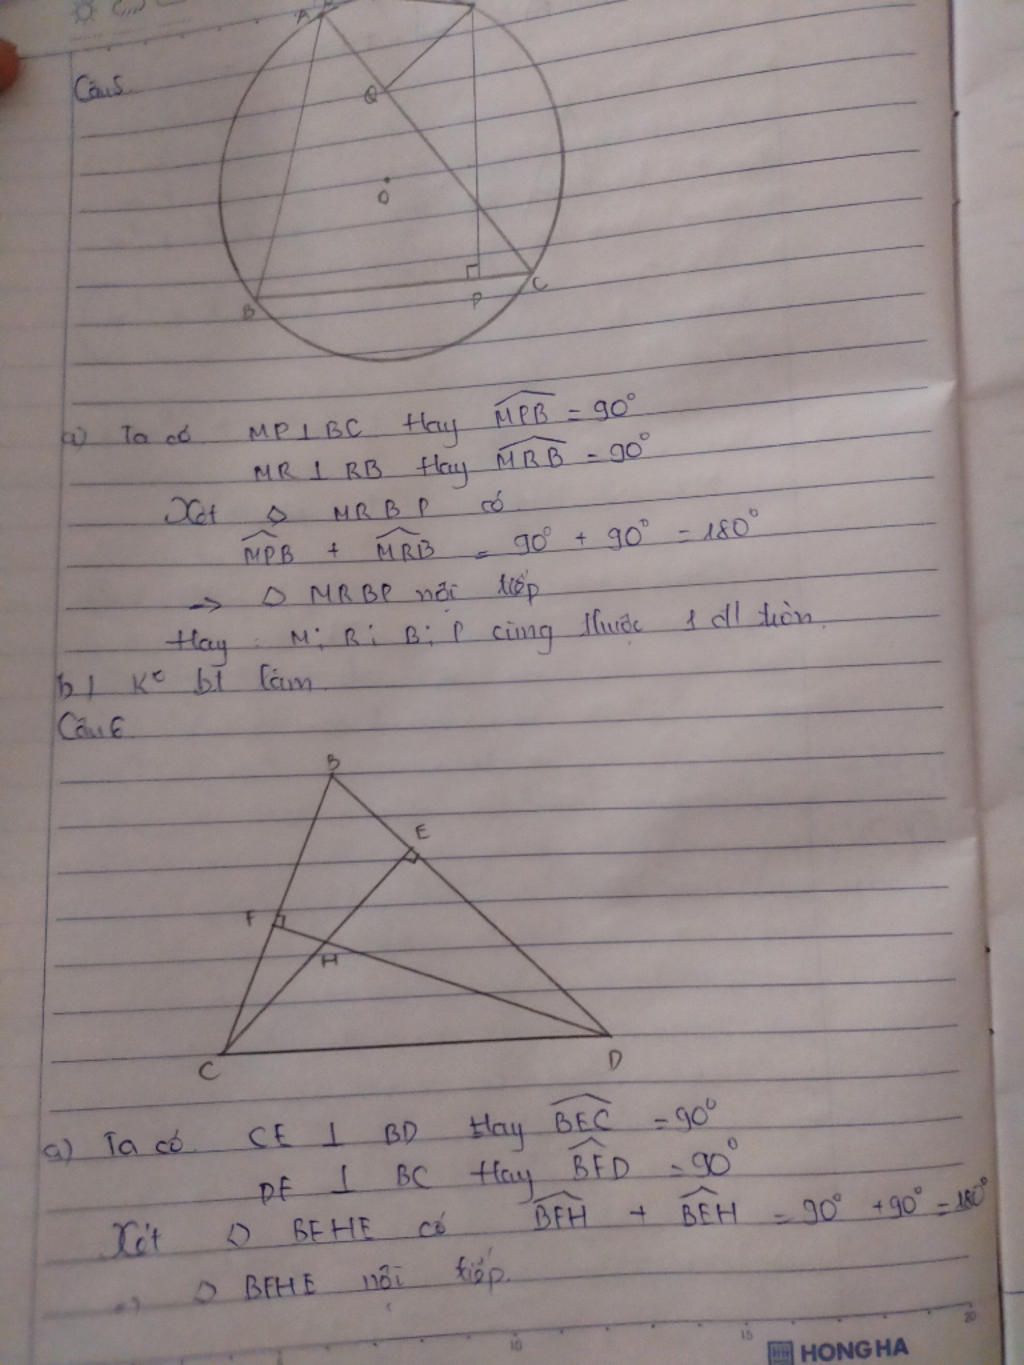 Câu 5.
A
Q
O
B
P
C
a) Ta có MP⊥BC Hay MPB = 90°
MR ⊥ RB Hay MRB = 90°
Xét ◇ MRBP có
MPB + MRB = 90° + 90° = 180°
→ ◇ MRBP nội tiếp
Hay: M; R; B; P cùng thuộc 1 đ/ tròn.
b) K° bt làm.
Câu 6.
B
E
F
H
C
D
a) Ta có CE ⊥ BD Hay BEC = 90°
DF ⊥ BC Hay BFD = 90°
Xét ◇ BFHE có BFH + BEH = 90° + 90° = 180°
◇ BFHE nội tiếp.
10 15 20
HONG HA